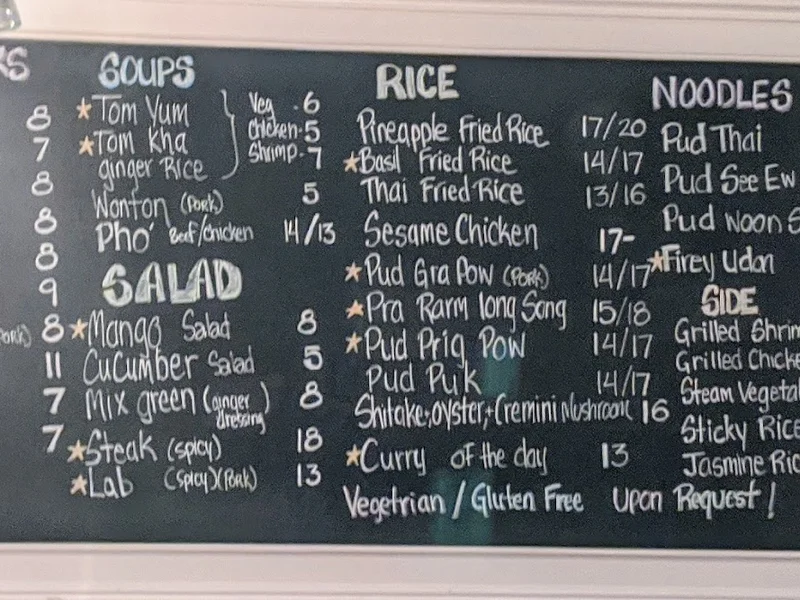 RS
8
7
8
8
8
9
8
11
7
7
SOUPS
★Tom Yum
★Tom Kha
ginger Rice
Veg - 6
Chicken - 5
Shrimp - 7
Wonton (Pork) 5
Pho' Beef/Chicken 14/13
SALAD
★Mango Salad 8
Cucumber Salad 5
Mix green (ginger dressing) 8
★Steak (spicy) 18
★Lab (Spicy)(Pork) 13
RICE
Pineapple Fried Rice 17/20
★Basil Fried Rice 14/17
Thai Fried Rice 13/16
Sesame Chicken 17-
★Pud Gra Pow (Pork) 14/17
★Pra Rarm long Song 15/18
★Pud Prig Pow 14/17
Pud Puk 14/17
Shitake, oyster, + Cremini Mushroom 16
★Curry of the day 13
Vegetrian / Gluten Free Upon Request!
NOODLES
Pud Thai
Pud See Ew
Pud Noon S
★Firey Udon
SIDE
Grilled Shrim
Grilled Chicke
Steam Vegeta
Sticky Rice
Jasmine Ric